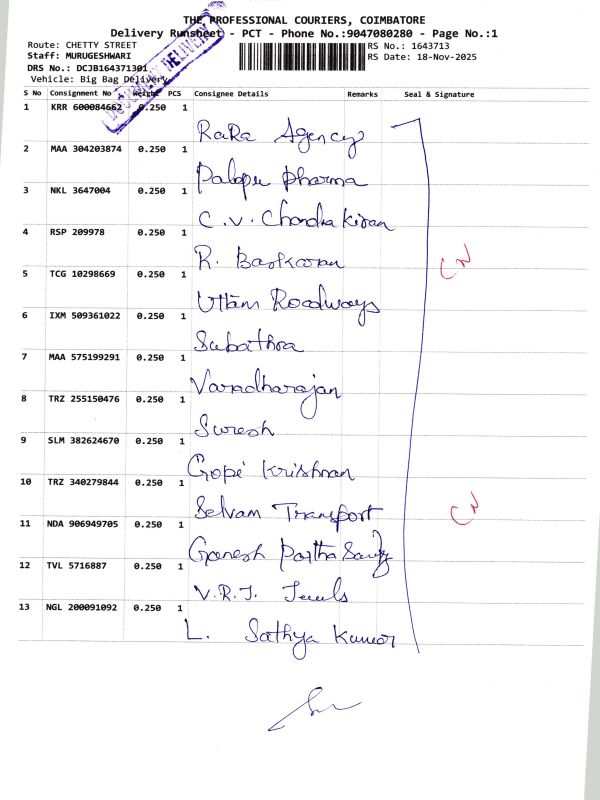 THE PROFESSIONAL COURIERS, COIMBATORE
Delivery Runsheet - PCT - Phone No.:9047080280 - Page No.:1
Route: CHETTY STREET RS No.: 1643713
Staff: MURUGESHWARI RS Date: 18-Nov-2025
DRS No.: DCJB164371301
Vehicle: Big Bag Delivery
DELIVERY
S No Consignment No Weight PCS Consignee Details Remarks Seal & Signature
1 KRR 600084662 0.250 1 RaRa Agency
2 MAA 304203874 0.250 1 Palepu pharma
3 NKL 3647004 0.250 1 C.V. Chandra Kiran
4 RSP 209978 0.250 1 R. Baskaran
CN
5 TCG 10298669 0.250 1 Uttam Roadways
6 IXM 509361022 0.250 1 Subathra
7 MAA 575199291 0.250 1 Varadharajan
8 TRZ 255150476 0.250 1 Suresh
9 SLM 382624670 0.250 1 Gopi Krishnan
10 TRZ 340279844 0.250 1 Selvam Transport
CN
11 NDA 906949705 0.250 1 Ganesh Partha
12 TVL 5716887 0.250 1 V.R.J. Jewels
13 NGL 200091092 0.250 1 L. Sathya Kumar